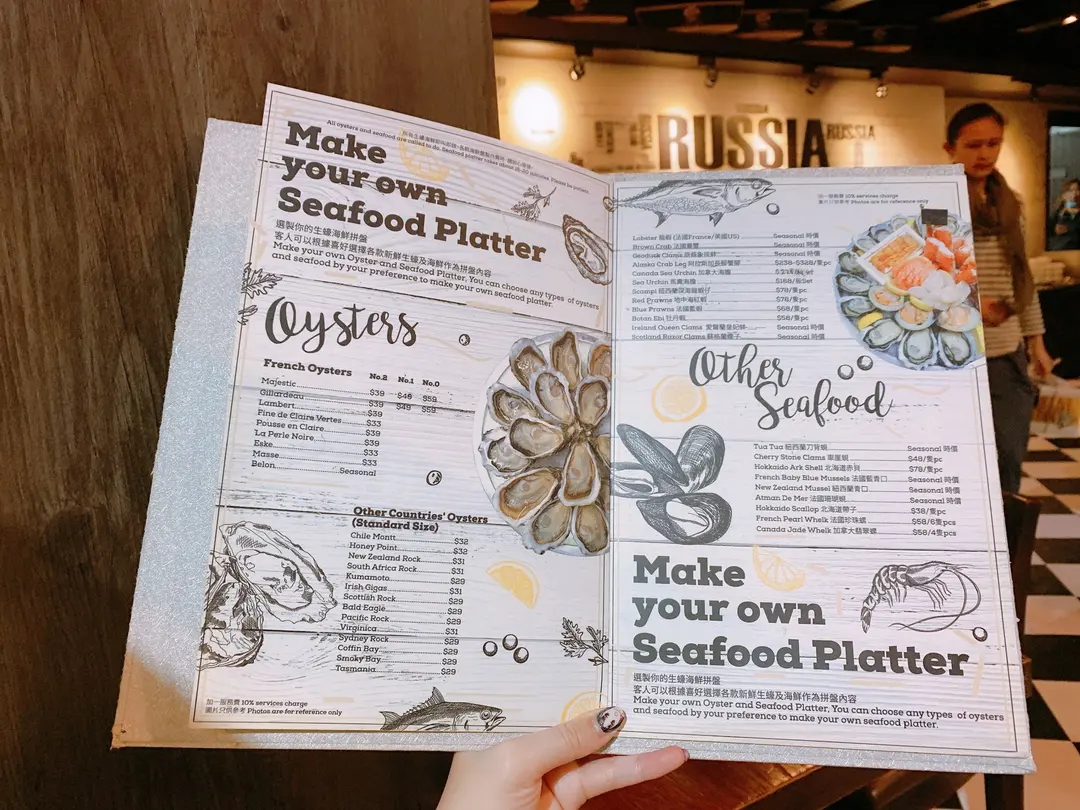 All oysters and seafood are called to do. Seafood platter takes about
Make
your own
Seafood Platter
選製你的生蠔海鮮拼盤
客人可以根據喜好選擇各款新鮮生蠔及海鮮作為拼盤內容
Make your own Oyster and Seafood Platter, You can choose any types of oysters
and seafood by your preference to make your own seafood platter.
Oysters
French Oysters No.2 No.1 No.0
Majestic $39 $46 $59
Gillardeau $39 $49 $59
Lambert $39
Pine de Claire Vertes $33
Pousse en Claire $39
La Perle Noire $39
Eske $33
Masse $33
Belon Seasonal
Other Countries' Oysters
(Standard Size)
Chile Montt $32
Honey Point $32
New Zealand Rock $31
South Africa Rock $31
Kumamoto $29
Irish Gigas $31
Scottish Rock $29
Bald Eagle $29
Pacific Rock $29
Virginica $31
Sydney Rock $29
Coffin Bay $29
Smoky Bay $29
Tasmania $29
加一服務費 10% services charge
圖片只供參考 Photos are for reference only
RUSSIA
RUSSIA
加一服務費 10% services charge
圖片只供參考 Photos are for reference only
Lobster 龍蝦 (法國France/美國US) Seasonal 時價
Brown Crab 法國麵蟹 Seasonal 時價
Geoduck Clams Seasonal 時價
Alaska Crab Leg 阿拉斯加長腳蟹腳 $238-$328/隻pc
Canada Sea Urchin 加拿大海膽
Sea Urchin 馬糞海膽 $168/set
Scampi 紐西蘭深海龍蝦仔 $78/隻pc
Red Prawns 地中海紅蝦 $78/隻pc
Blue Prawns 法國藍蝦 $68/隻pc
Botan Ebi 牡丹蝦 $58/隻pc
Ireland Queen Clams 愛爾蘭皇妃蚌 Seasonal 時價
Scotland Razor Clams 蘇格蘭蟶子 Seasonal 時價
Other
Seafood
Tua Tua 紐西蘭刀背蜆 Seasonal 時價
Cherry Stone Clams 車厘蜆 $48/隻pc
Hokkaido Ark Shell 北海道赤貝 $78/隻pc
French Baby Blue Mussels 法國藍青口 Seasonal 時價
New Zealand Mussel 紐西蘭青口 Seasonal 時價
Atman De Mer 法國珊瑚蜆 Seasonal 時價
Hokkaido Scallop 北海道帶子 $38/隻pc
French Pearl Whelk 法國珍珠螺 $58/6隻pcs
Canada Jade Whelk 加拿大翡翠螺 $58/4隻pcs
Make
your own
Seafood Platter
選製你的生蠔海鮮拼盤
客人可以根據喜好選擇各款新鮮生蠔及海鮮作為拼盤內容
Make your own Oyster and Seafood Platter, You can choose any types of oysters
and seafood by your preference to make your own seafood platter.